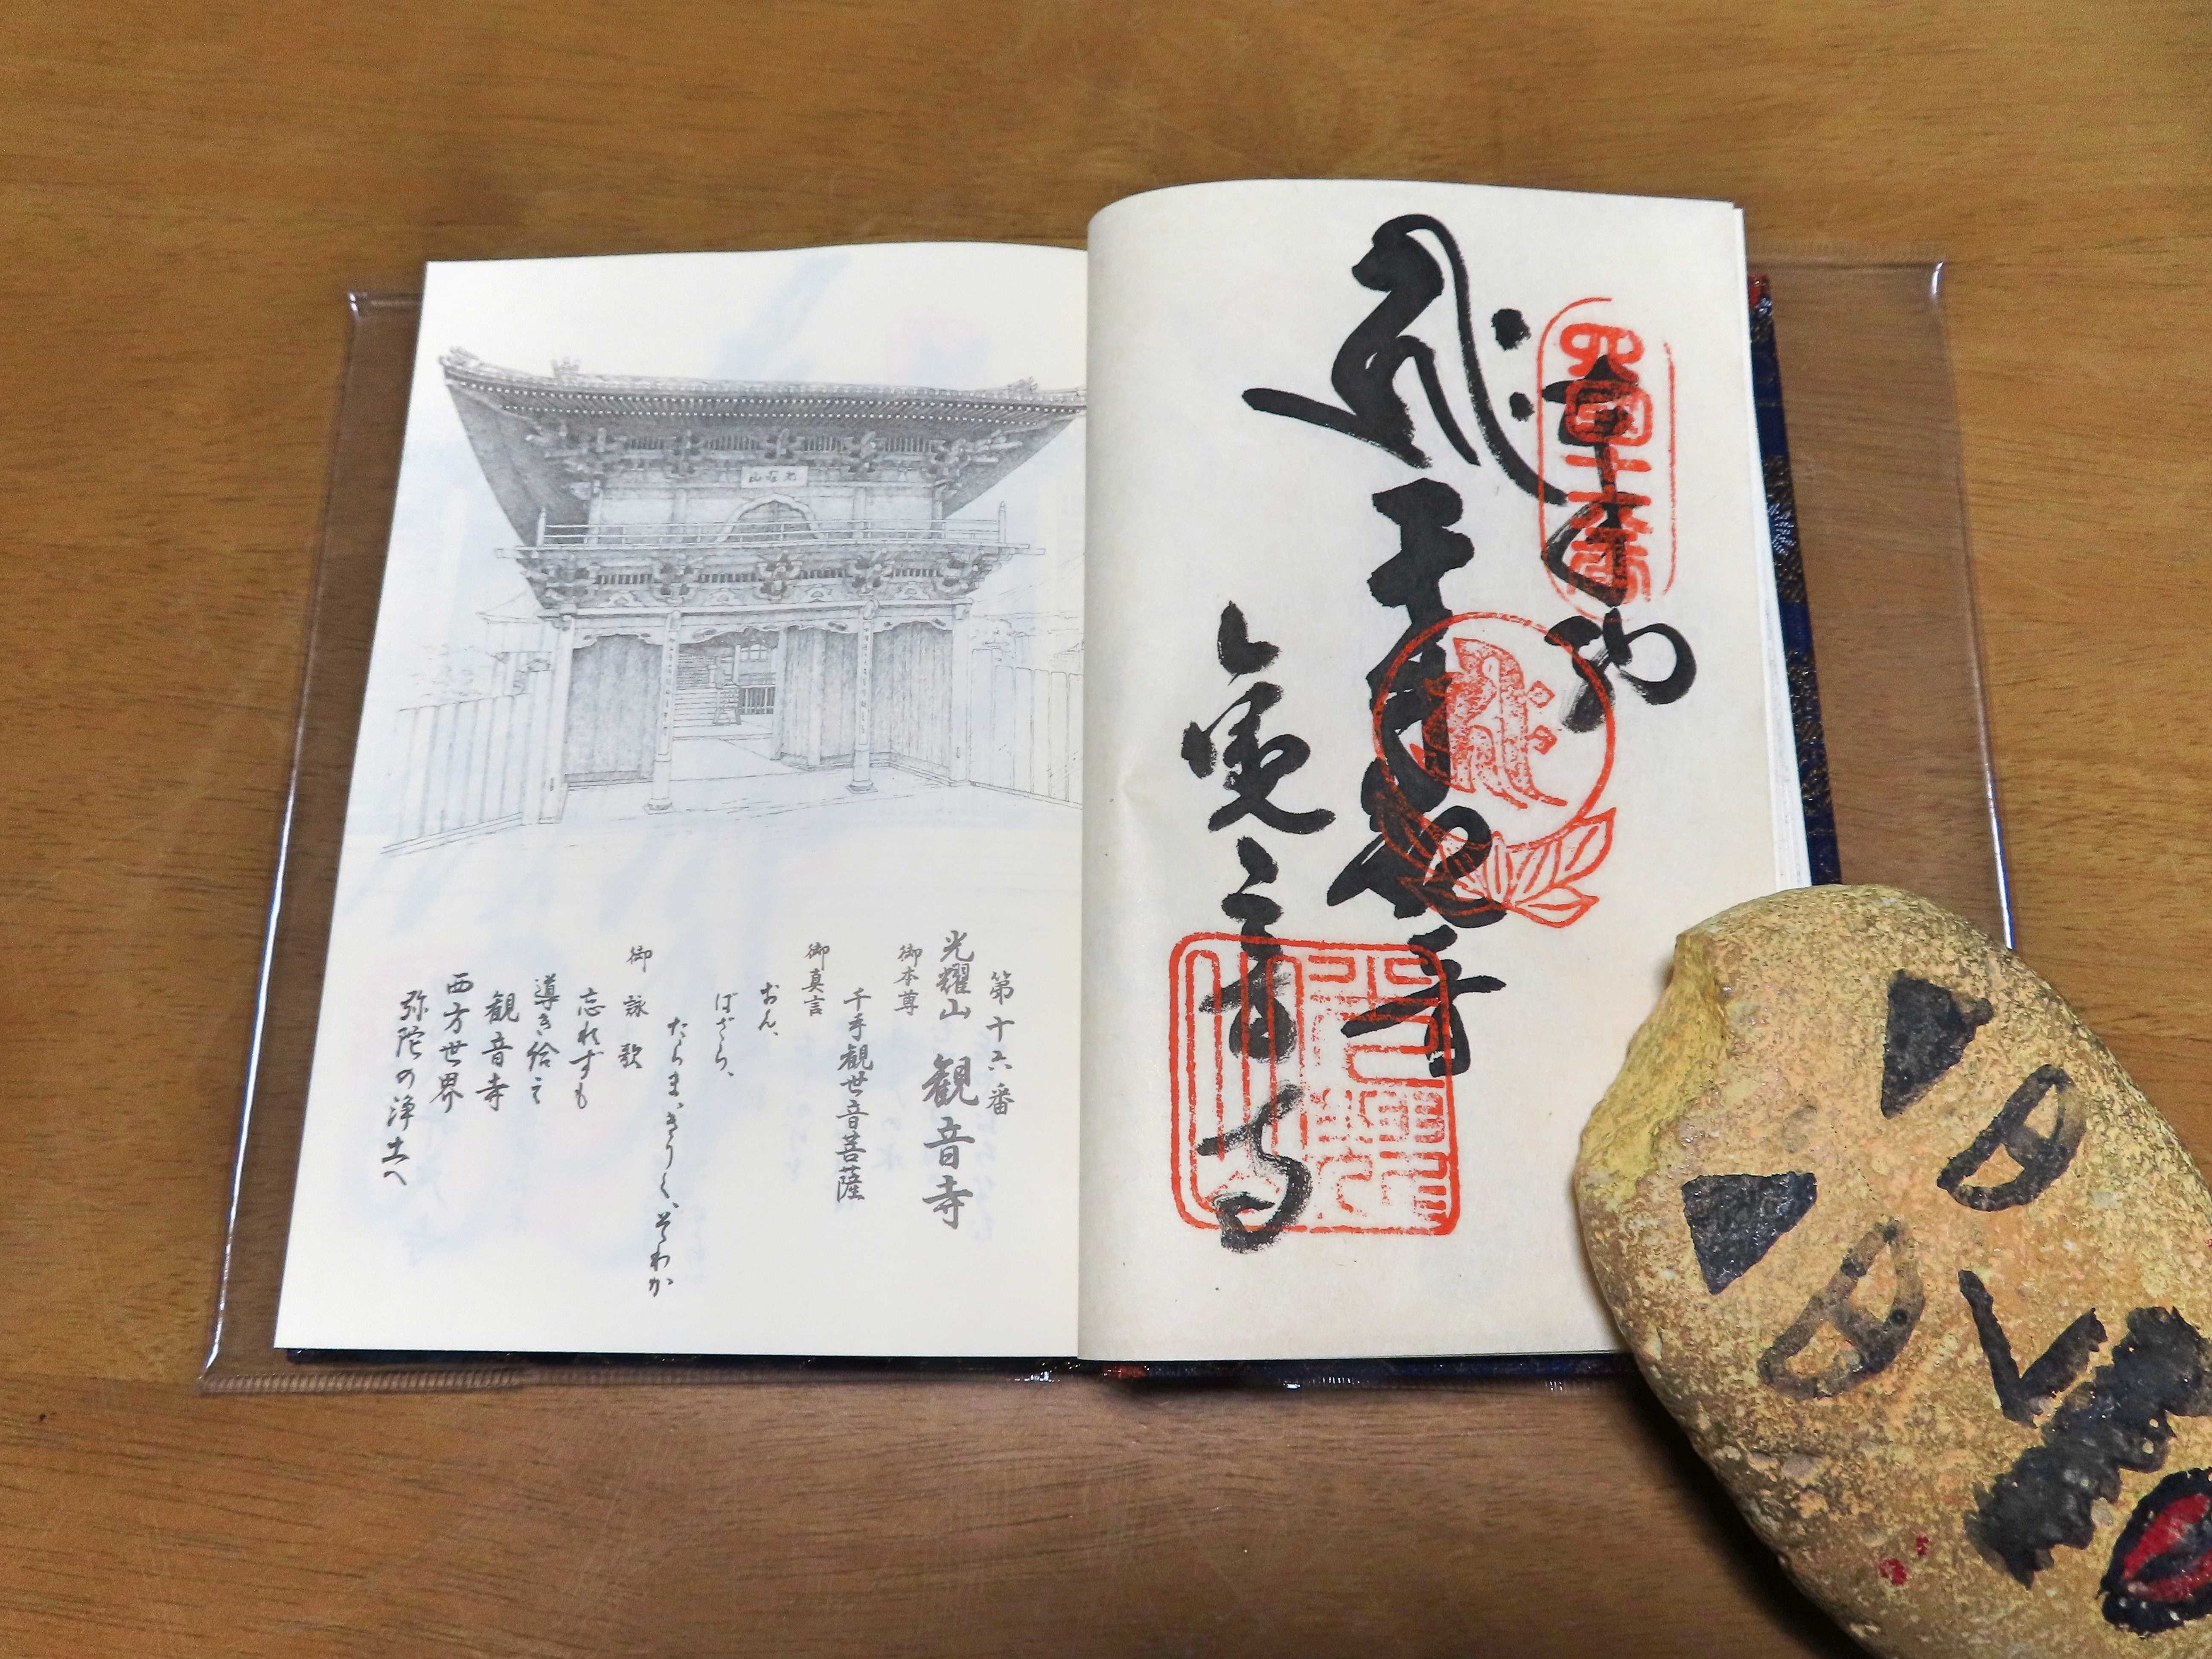 奉
千手観世音
観音寺
四国十六番
第十六番
光耀山 観音寺
御本尊
千手観世音菩薩
御真言
おん、
ばざら、
たらま、きりく、そわか
御詠歌
忘れずも
導き給え
観音寺
西方世界
弥陀の浄土へ